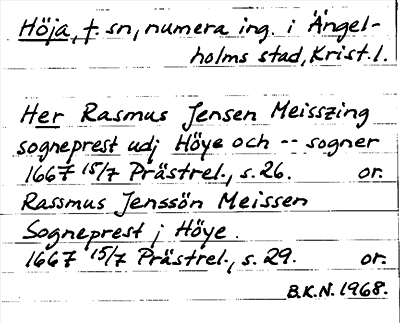 Höja, † sn, numera ing. i Ängel-
holms stad, Krist. l.
Her Rasmus Jensen Meisszing
sogneprest udj Höye och -- sogner
1667 15/7 Prästrel., s. 26. or.
Rassmus Jenssön Meissen
Sogneprest j Höye.
1667 15/7 Prästrel., s. 29. or.
B.K.N. 1968.